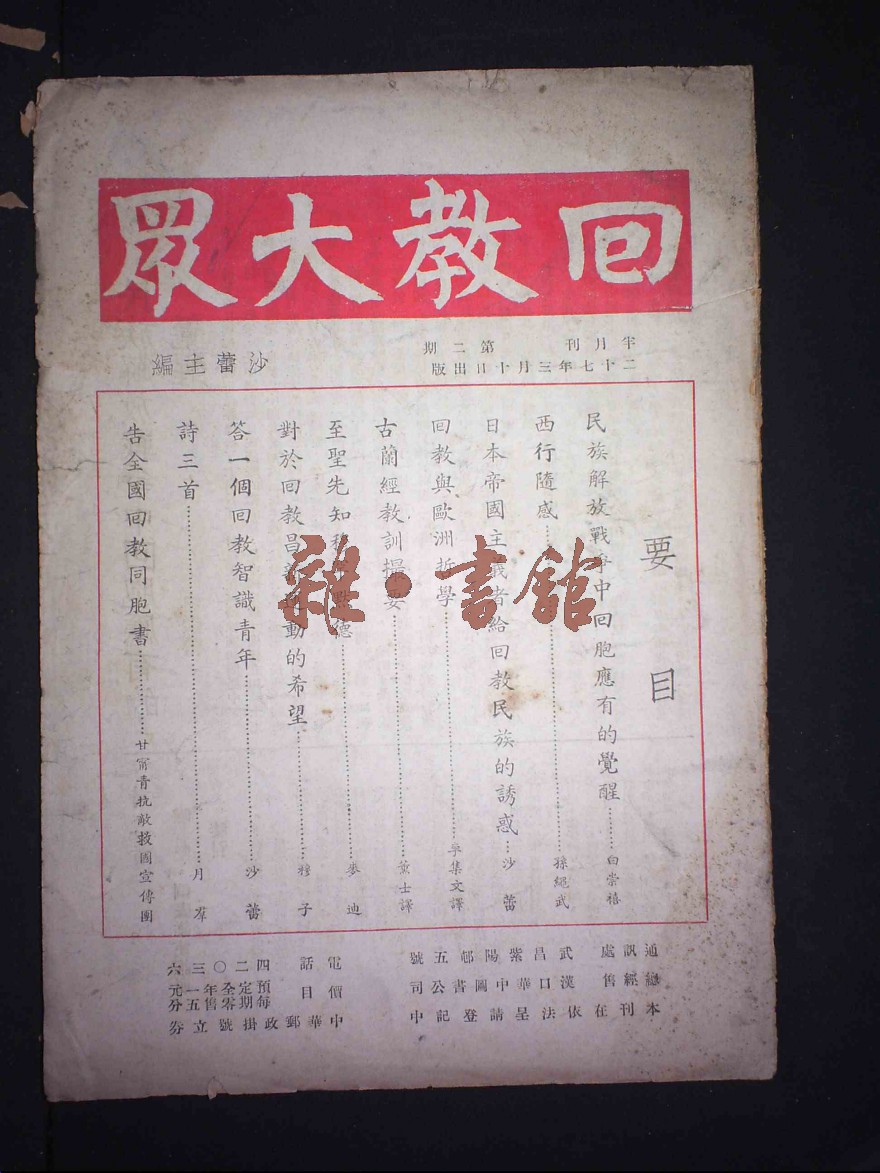 回教大眾
半月刊 第二期
二十七年三月十日出版
沙蕾主編
要目
民族解放戰爭中回胞應有的覺醒………白崇禧
西行隨感………孫繩武
日本帝國主義者給回教民族的誘惑…沙蕾
回教與歐洲哲學………李集文譯
古蘭經教訓撮要………黄士譯
至聖先知穆 默德………麥迪
對於回教昌 運動的希望………穆子
答一個回教智識青年………沙蕾
詩三首………月
告全國回教同胞書………甘甯青抗敵救國宣傳團
通訊處 武昌紫陽邨五號
總經售 漢口華中圖書公司
本刊在依法呈請登記中
電話 四二〇三六
價目 預定全年一元
每期零售五分
中華郵政掛號立券
雜·書館